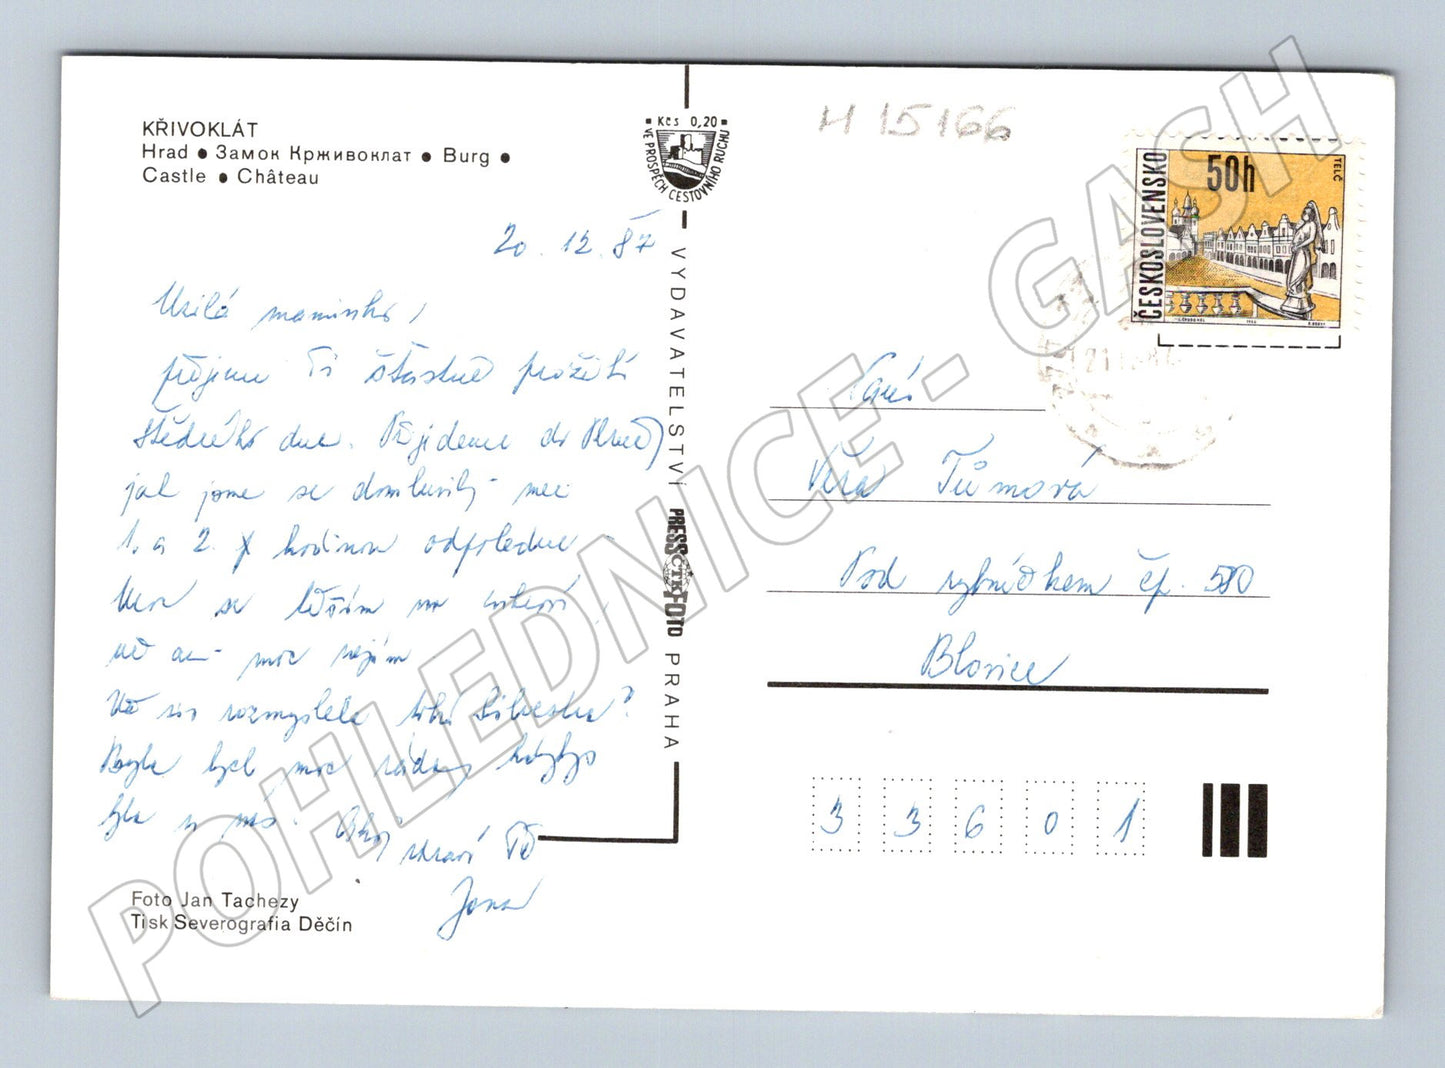 KŘIVOKLÁT
Hrad ● Замок Крживоклат ● Burg ●
Castle ● Château
Kčs 0,20
VE PROSPĚCH CESTOVNÍHO RUCHU
20. 12. 87
Milá maminko,
přejeme Ti šťastné prožití
štědrého dne. Přijdeme do Plzně
jak jsme se domluvily - mezi
1. a 2. hodinou odpoledne -
Moc se těším na
už ani moc nejím
Už sis rozmyslela toho Silvestra?
Byla bych moc ráda, kdybys
byla u nás. Ahoj
zdraví Tě
Jana
Foto Jan Tachezy
Tisk Severografia Děčín
VYDAVATELSTVÍ PRESSFOTO PRAHA
ČTK
H 15166
ČESKOSLOVENSKO
50h
TELČ
Věra Tůmová
Pod rybníčkem čp. 580
Blovice
3 3 6 0 1
POHLEDNICE - GASH